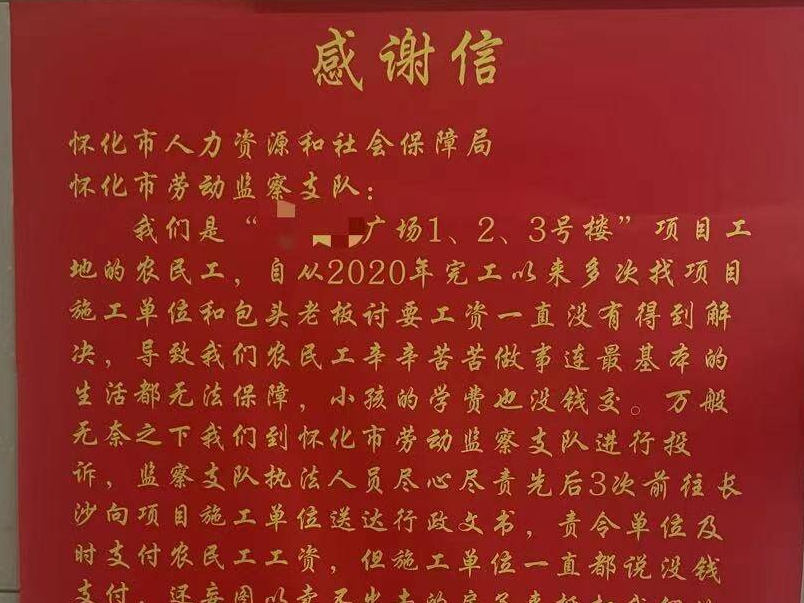 感谢信
怀化市人力资源和社会保障局
怀化市劳动监察支队：
我们是“广场1、2、3号楼”项目工
地的农民工，自从2020年完工以来多次找项目
施工单位和包头老板讨要工资一直没有得到解
决，导致我们农民工辛辛苦苦做事连最基本的
生活都无法保障，小孩的学费也没钱交。万般
无奈之下我们到怀化市劳动监察支队进行投
诉，监察支队执法人员尽心尽责先后3次前往长
沙向项目施工单位送达行政文书，责令单位及
时支付农民工工资，但施工单位一直都说没钱
支付，还妄图以卖不出去的房子来抵